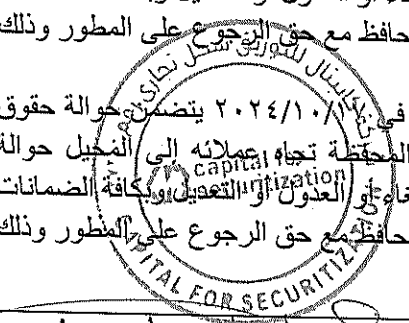 حافظ مع حق الرجوع على المطور وذلك
في ٢٠٢٤/١٠/ يتضمن حوالة حقوق
المحفظة تجاه عملائه إلى المحيل حوالة
فاء أو العدول أو التعديل وبكافة الضمانات
حافظ مع حق الرجوع على المطور وذلك
كابيتال للتوريق سجل تجارى
capital for
securitization
CAPITAL FOR SECURITIZATION